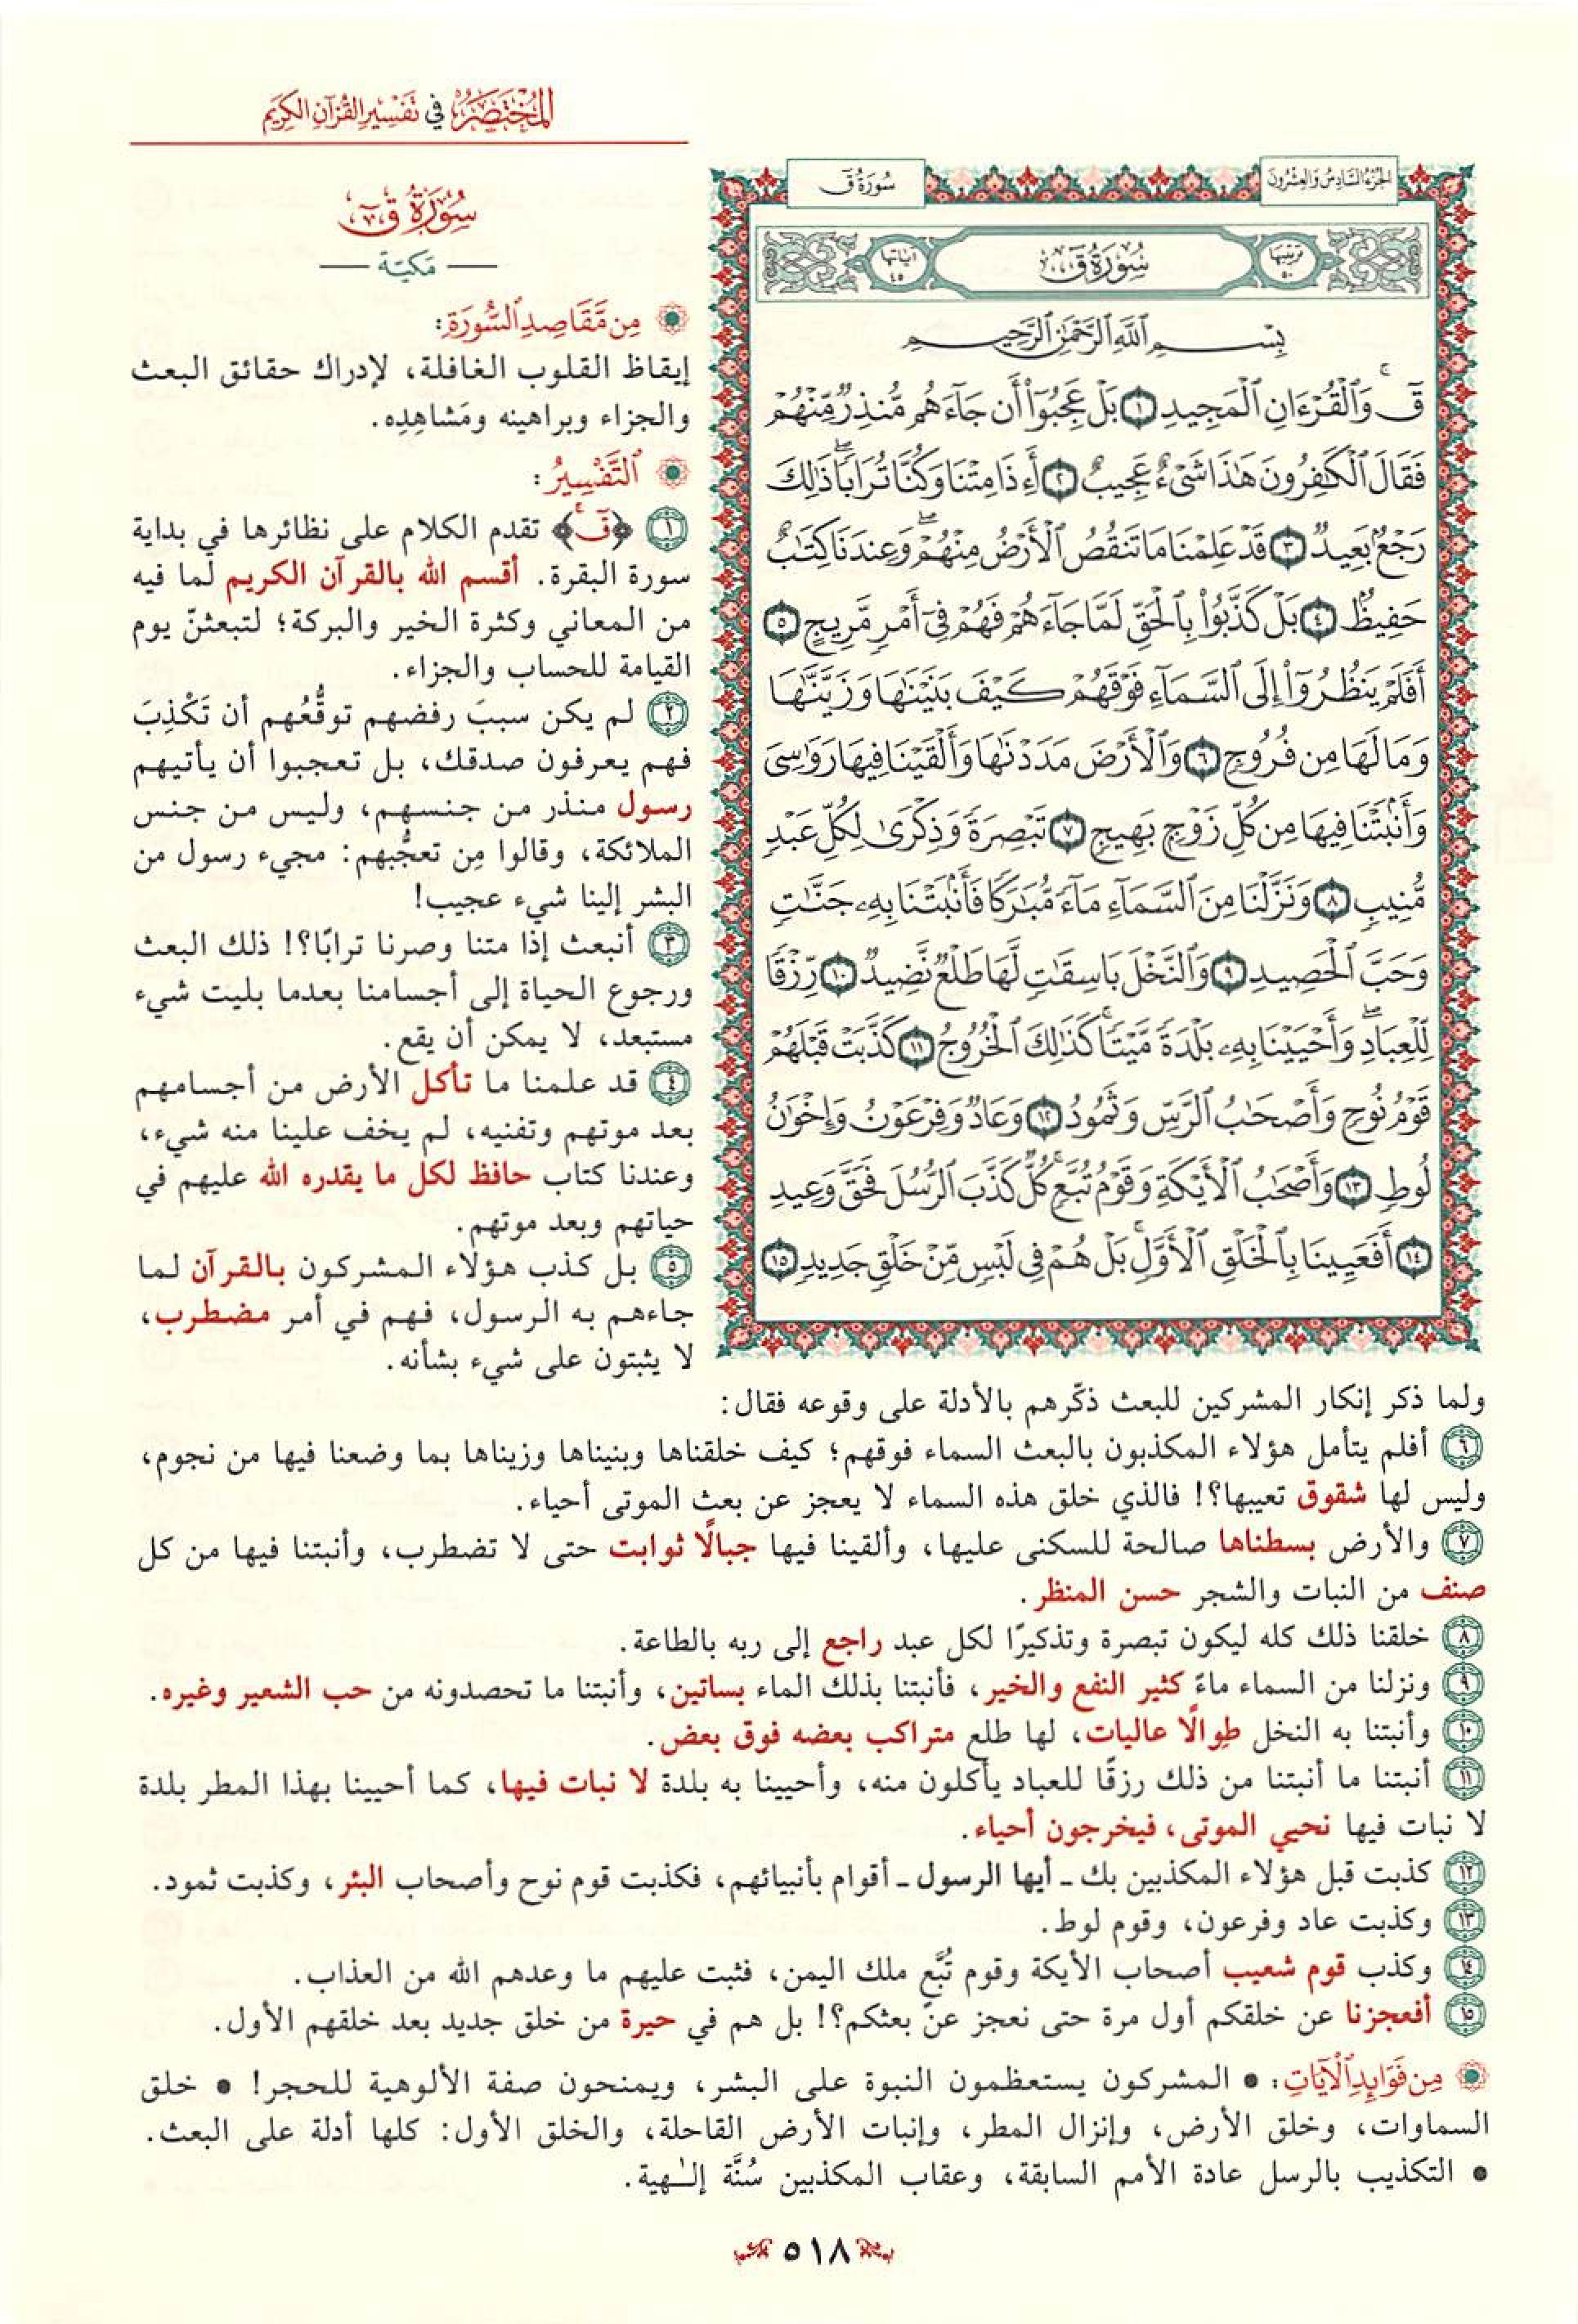 المختصر في تفسير القرآن الكريم
الجزء السادس والعشرون
سورة ق
ترتيبها ٥٠
سُورَةُ قٓ
آياتها ٤٥
بِسْمِ ٱللَّهِ ٱلرَّحْمَٰنِ ٱلرَّحِيمِ
قٓۚ وَٱلْقُرْءَانِ ٱلْمَجِيدِ ١ بَلْ عَجِبُوٓا۟ أَن جَآءَهُم مُّنذِرٌ مِّنْهُمْ
فَقَالَ ٱلْكَٰفِرُونَ هَٰذَا شَىْءٌ عَجِيبٌ ٢ أَءِذَا مِتْنَا وَكُنَّا تُرَابًاۖ ذَٰلِكَ
رَجْعٌۢ بَعِيدٌ ٣ قَدْ عَلِمْنَا مَا تَنقُصُ ٱلْأَرْضُ مِنْهُمْۖ وَعِندَنَا كِتَٰبٌ
حَفِيظٌۢ ٤ بَلْ كَذَّبُوا۟ بِٱلْحَقِّ لَمَّا جَآءَهُمْ فَهُمْ فِىٓ أَمْرٍ مَّرِيجٍ ٥
أَفَلَمْ يَنظُرُوٓا۟ إِلَى ٱلسَّمَآءِ فَوْقَهُمْ كَيْفَ بَنَيْنَٰهَا وَزَيَّنَّٰهَا
وَمَا لَهَا مِن فُرُوجٍ ٦ وَٱلْأَرْضَ مَدَدْنَٰهَا وَأَلْقَيْنَا فِيهَا رَوَٰسِىَ
وَأَنۢبَتْنَا فِيهَا مِن كُلِّ زَوْجٍۭ بَهِيجٍ ٧ تَبْصِرَةً وَذِكْرَىٰ لِكُلِّ عَبْدٍ
مُّنِيبٍ ٨ وَنَزَّلْنَا مِنَ ٱلسَّمَآءِ مَآءً مُّبَٰرَكًا فَأَنۢبَتْنَا بِهِۦ جَنَّٰتٍ
وَحَبَّ ٱلْحَصِيدِ ٩ وَٱلنَّخْلَ بَاسِقَٰتٍ لَّهَا طَلْعٌ نَّضِيدٌ ١٠ رِّزْقًا
لِّلْعِبَادِۖ وَأَحْيَيْنَا بِهِۦ بَلْدَةً مَّيْتًاۚ كَذَٰلِكَ ٱلْخُرُوجُ ١١ كَذَّبَتْ قَبْلَهُمْ
قَوْمُ نُوحٍ وَأَصْحَٰبُ ٱلرَّسِّ وَثَمُودُ ١٢ وَعَادٌ وَفِرْعَوْنُ وَإِخْوَٰنُ
لُوطٍ ١٣ وَأَصْحَٰبُ ٱلْأَيْكَةِ وَقَوْمُ تُبَّعٍۚ كُلٌّ كَذَّبَ ٱلرُّسُلَ فَحَقَّ وَعِيدِ
١٤ أَفَعَيِينَا بِٱلْخَلْقِ ٱلْأَوَّلِۚ بَلْ هُمْ فِى لَبْسٍ مِّنْ خَلْقٍ جَدِيدٍ ١٥
سُورَةُ قٓ
مَكيّة
مِن مَّقَاصِدِ ٱلسُّورَةِ:
إيقاظ القلوب الغافلة، لإدراك حقائق البعث
والجزاء وبراهينه ومَشاهِدِه.
ٱلتَّفْسِيرُ:
١ ﴿قٓۚ﴾ تقدم الكلام على نظائرها في بداية
سورة البقرة. أقسم الله بالقرآن الكريم لما فيه
من المعاني وكثرة الخير والبركة؛ لتبعثنّ يوم
القيامة للحساب والجزاء.
٢ لم يكن سببَ رفضهم توقُّعُهم أن تَكْذِبَ
فهم يعرفون صدقك، بل تعجبوا أن يأتيهم
رسول منذر من جنسهم، وليس من جنس
الملائكة، وقالوا مِن تعجُّبهم: مجيء رسول من
البشر إلينا شيء عجيب!
٣ أنبعث إذا متنا وصرنا ترابًا؟! ذلك البعث
ورجوع الحياة إلى أجسامنا بعدما بليت شيء
مستبعد، لا يمكن أن يقع.
٤ قد علمنا ما تأكل الأرض من أجسامهم
بعد موتهم وتفنيه، لم يخف علينا منه شيء،
وعندنا كتاب حافظ لكل ما يقدره الله عليهم في
حياتهم وبعد موتهم.
٥ بل كذب هؤلاء المشركون بالقرآن لما
جاءهم به الرسول، فهم في أمر مضطرب،
لا يثبتون على شيء بشأنه.
ولما ذكر إنكار المشركين للبعث ذكّرهم بالأدلة على وقوعه فقال:
٦ أفلم يتأمل هؤلاء المكذبون بالبعث السماء فوقهم؛ كيف خلقناها وبنيناها وزيناها بما وضعنا فيها من نجوم،
وليس لها شقوق تعيبها؟! فالذي خلق هذه السماء لا يعجز عن بعث الموتى أحياء.
٧ والأرض بسطناها صالحة للسكنى عليها، وألقينا فيها جبالًا ثوابت حتى لا تضطرب، وأنبتنا فيها من كل
صنف من النبات والشجر حسن المنظر.
٨ خلقنا ذلك كله ليكون تبصرة وتذكيرًا لكل عبد راجع إلى ربه بالطاعة.
٩ ونزلنا من السماء ماءً كثير النفع والخير، فأنبتنا بذلك الماء بساتين، وأنبتنا ما تحصدونه من حب الشعير وغيره.
١٠ وأنبتنا به النخل طِوالًا عاليات، لها طلع متراكب بعضه فوق بعض.
١١ أنبتنا ما أنبتنا من ذلك رزقًا للعباد يأكلون منه، وأحيينا به بلدة لا نبات فيها، كما أحيينا بهذا المطر بلدة
لا نبات فيها نحيي الموتى، فيخرجون أحياء.
١٢ كذبت قبل هؤلاء المكذبين بك ـ أيها الرسول ـ أقوام بأنبيائهم، فكذبت قوم نوح وأصحاب البئر، وكذبت ثمود.
١٣ وكذبت عاد وفرعون، وقوم لوط.
١٤ وكذب قوم شعيب أصحاب الأيكة وقوم تُبَّعٍ ملك اليمن، فثبت عليهم ما وعدهم الله من العذاب.
١٥ أفعجزنا عن خلقكم أول مرة حتى نعجز عن بعثكم؟! بل هم في حيرة من خلق جديد بعد خلقهم الأول.
مِن فَوَائِدِ ٱلْآيَاتِ: • المشركون يستعظمون النبوة على البشر، ويمنحون صفة الألوهية للحجر! • خلق
السماوات، وخلق الأرض، وإنزال المطر، وإنبات الأرض القاحلة، والخلق الأول: كلها أدلة على البعث.
• التكذيب بالرسل عادة الأمم السابقة، وعقاب المكذبين سُنَّة إلـٰهية.
٥١٨